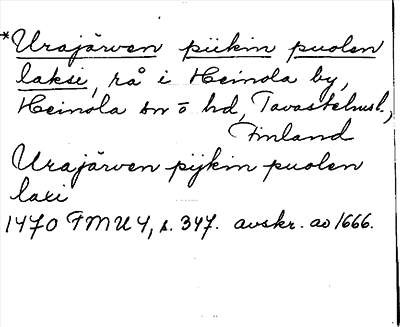 *Urajärven piikin puolen
laksi, rå i Heinola by,
Heinola sn o hd, Tavastehusl.,
Finland
Urajärven pijkin puolen
laxi
1470 FMU 4, s. 347. avskr. ao 1666.